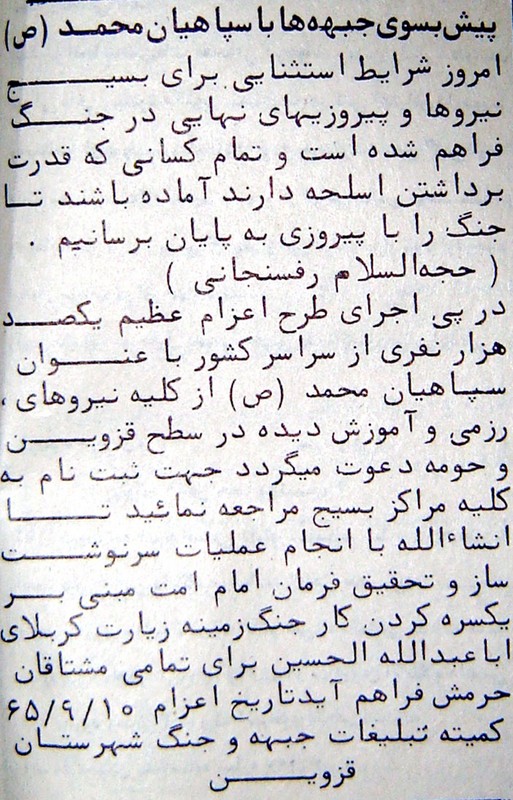 پیش بسوی جبهه‌ها با سپاهیان محمد (ص)
امروز شرایط استثنایی برای بسیج
نیروها و پیروزیهای نهایی در جنگ
فراهم شده است و تمام کسانی که قدرت
برداشتن اسلحه دارند آماده باشند تا
جنگ را با پیروزی به پایان برسانیم .
( حجه‌السلام رفسنجانی )
در پی اجرای طرح اعزام عظیم یکصد
هزار نفری از سراسر کشور با عنوان
سپاهیان محمد (ص) از کلیه نیروهای ،
رزمی و آموزش دیده در سطح قزوین
و حومه دعوت میگردد جهت ثبت نام به
کلیه مراکز بسیج مراجعه نمائید تا
انشاءالله با انجام عملیات سرنوشت
ساز و تحقیق فرمان امام امت مبنی بر
یکسره کردن کار جنگ‌زمینه زیارت کربلای
اباعبدالله الحسین برای تمامی مشتاقان
حرمش فراهم آید تاریخ اعزام ۶۵/۹/۱۰
کمیته تبلیغات جبهه و جنگ شهرستان
قزوین